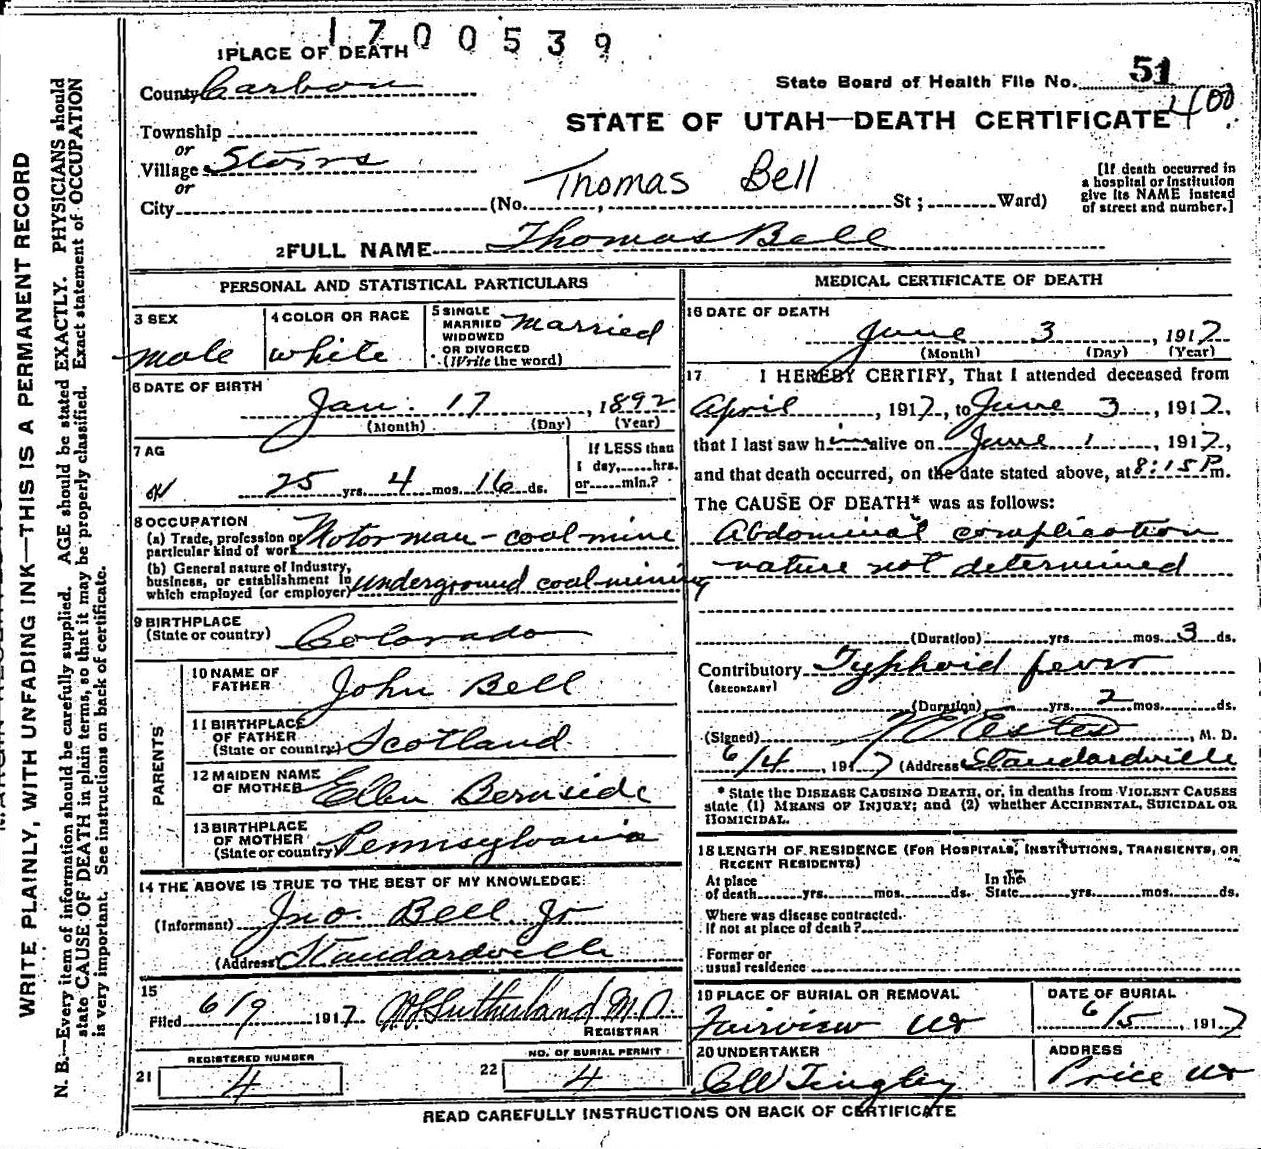 1700539
1 PLACE OF DEATH
County Carbon
State Board of Health File No. 51
400
STATE OF UTAH—DEATH CERTIFICATE
Township
or
Village Storrs
or
City (No. , St; Ward)
Thomas Bell
[If death occurred in
a hospital or institution
give its NAME instead
of street and number.]
2 FULL NAME Thomas Bell
PERSONAL AND STATISTICAL PARTICULARS
3 SEX
male
4 COLOR OR RACE
white
5 SINGLE
MARRIED
WIDOWED
OR DIVORCED
(Write the word)
married
6 DATE OF BIRTH
Jan. 17, 1892
(Month) (Day) (Year)
7 AG
25 yrs. 4 mos. 16 ds.
If LESS than
1 day, hrs.
or min.?
8 OCCUPATION
(a) Trade, profession or
particular kind of work Motorman - coal mine
(b) General nature of Industry,
business, or establishment in
which employed (or employer) underground coal mining
9 BIRTHPLACE
(State or country) Colorado
PARENTS
10 NAME OF
FATHER John Bell
11 BIRTHPLACE
OF FATHER
(State or country) Scotland
12 MAIDEN NAME
OF MOTHER Ellen Bernside
13 BIRTHPLACE
OF MOTHER
(State or country) Pennsylvania
14 THE ABOVE IS TRUE TO THE BEST OF MY KNOWLEDGE:
(Informant) Jno. Bell Jr
(Address) Standardville
15
Filed 6/9 1917 Sutherland M D
REGISTRAR
REGISTERED NUMBER
21 4
NO. OF BURIAL PERMIT
22 4
MEDICAL CERTIFICATE OF DEATH
16 DATE OF DEATH
June 3, 1917
(Month) (Day) (Year)
17 I HEREBY CERTIFY, That I attended deceased from
April, 1917, to June 3, 1917,
that I last saw him alive on June 1, 1917,
and that death occurred, on the date stated above, at 8:15 P m.
The CAUSE OF DEATH* was as follows:
Abdominal complication
nature not determined
(Duration) yrs. mos. 3 ds.
Contributory Typhoid fever
(SECONDARY)
(Duration) yrs. 2 mos. ds.
(Signed) Estes, M. D.
6/4, 1917 (Address) Standardville
* State the DISEASE CAUSING DEATH, or, in deaths from VIOLENT CAUSES
state (1) MEANS OF INJURY; and (2) whether ACCIDENTAL, SUICIDAL OR
HOMICIDAL.
18 LENGTH OF RESIDENCE (FOR HOSPITALS, INSTITUTIONS, TRANSIENTS, OR
RECENT RESIDENTS)
At place
of death yrs. mos. ds.
In the
State yrs. mos. ds.
Where was disease contracted.
if not at place of death?
Former or
usual residence
19 PLACE OF BURIAL OR REMOVAL
Fairview Ut
DATE OF BURIAL
6/5, 1917
20 UNDERTAKER
CW Tingley
ADDRESS
Price Ut
READ CAREFULLY INSTRUCTIONS ON BACK OF CERTIFICATE
WRITE PLAINLY, WITH UNFADING INK—THIS IS A PERMANENT RECORD
N. B.—Every item of information should be carefully supplied. AGE should be stated EXACTLY. PHYSICIANS should
state CAUSE OF DEATH in plain terms, so that it may be properly classified. Exact statement of OCCUPATION
is very important. See instructions on back of certificate.